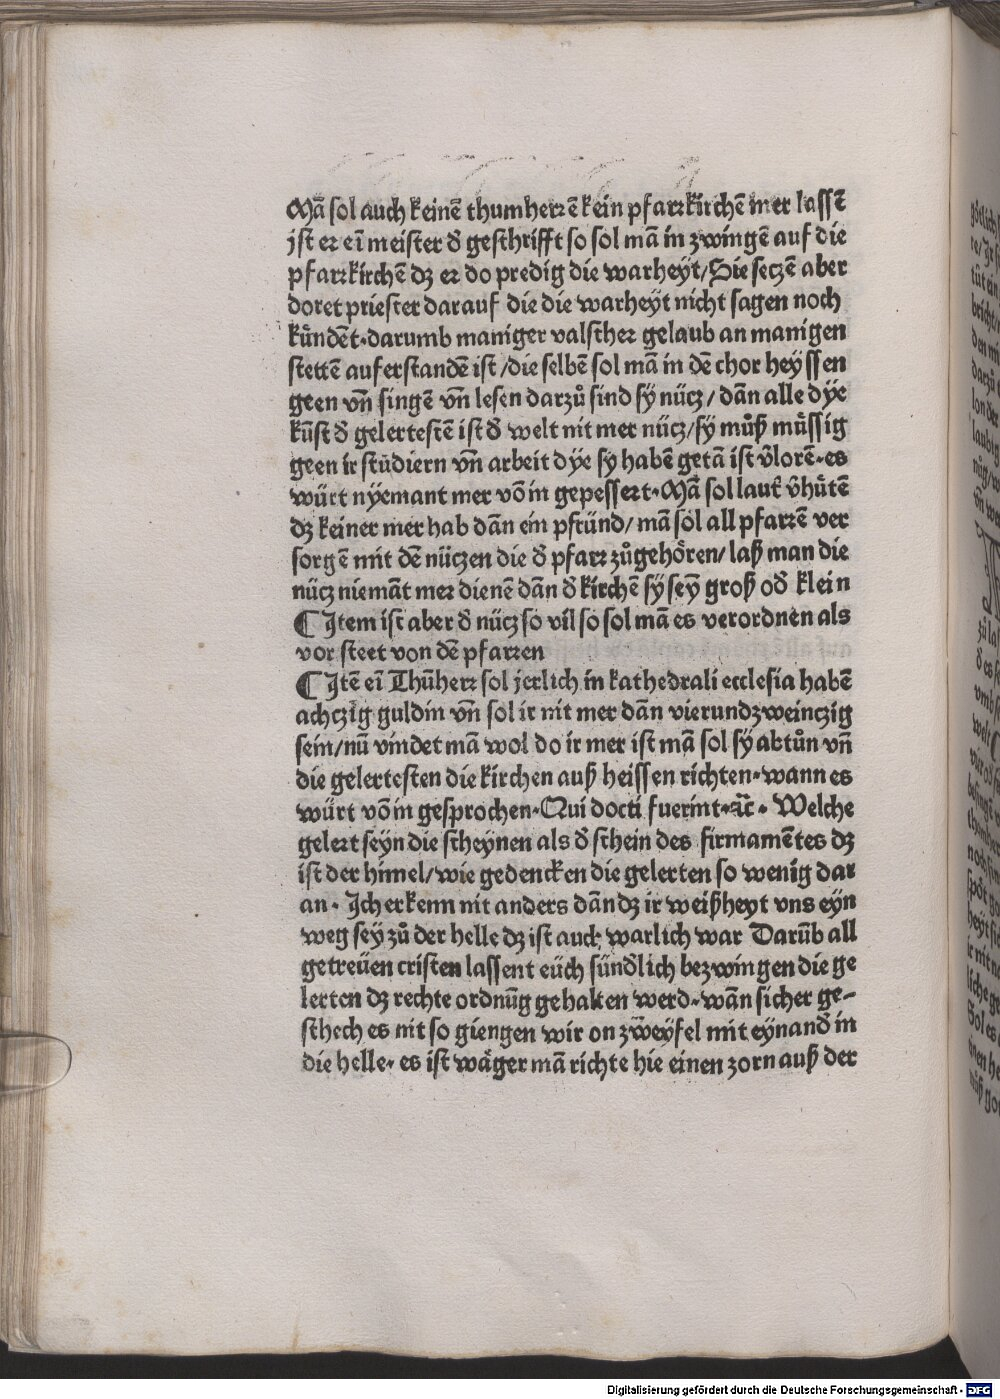 Mā sol auch keinē thumherꝛē kein pfarꝛkirchē mer lassē
jst eꝛ eī meister đ geschrifft so sol mā in zwingē auf die
pfarꝛkirchē dz eꝛ do predig die warheyt/Sie seczē aber
doret priester darauf die die warheyt nicht sagen noch
kündēt·darumb maniger valscheꝛ gelaub an manigen
stettē auferstandē ist/die selbē sol mā in dē chor heyssen
geen vn̄ singē vn̄ lesen darzů sind sy nücz/ dān alle dye
kūst đ gelertestē ist đ welt nit mer nücz/sy můß müssig
geen ir studiern vn̄ arbeit dye sy habē getā ist v̄lorē·es
würt nyemant mer vō in gepesseꝛt·Mā sol laut v̄hütē
dz keiner mer hab dān ein pfründ/ mā sol all pfarꝛē ver
sorgē mit dē nüczen die đ pfarꝛ zůgehören/ laß man die
nücz niemāt meꝛ dienē dān đ kirchē sy sey groß ođ klein
¶ Jtem ist aber đ nücz so vil so sol mā es verordnen als
vor steet von dē pfarꝛen
¶ Jtē eī Thūherꝛ sol jerlich in kathedrali ecclesia habē
achczig guldin vn̄ sol ir nit mer dān vierundzweinczig
sein/nū vindet mā wol do ir mer ist mā sol sy abtůn vn̄
die gelertesten die kirchen auß heissen richten·wann es
würt vō in gesprochen·Qui docti fuerint·ꝛc̄· Welche
geleꝛt seyn die scheynen als đ schein des firmamētes dz
ist der himel/wie gedencken die gelerten so wenig dar
an· Jch erkenn nit anders dān dz ir weißheyt vns eyn
weg sey zů der helle dz ist auch warlich war Darūb all
getreüen cristen lassent eüch sünđlich bezwingen die ge
lerten dz rechte ordnūg gehalten werd·wān sicher ge-
schech es nit so giengen wir on zweyfel mit eynanđ in
die helle· es ist wäger mā richte hie einen zorn auß der
Digitalisierung gefördert durch die Deutsche Forschungsgemeinschaft - DFG